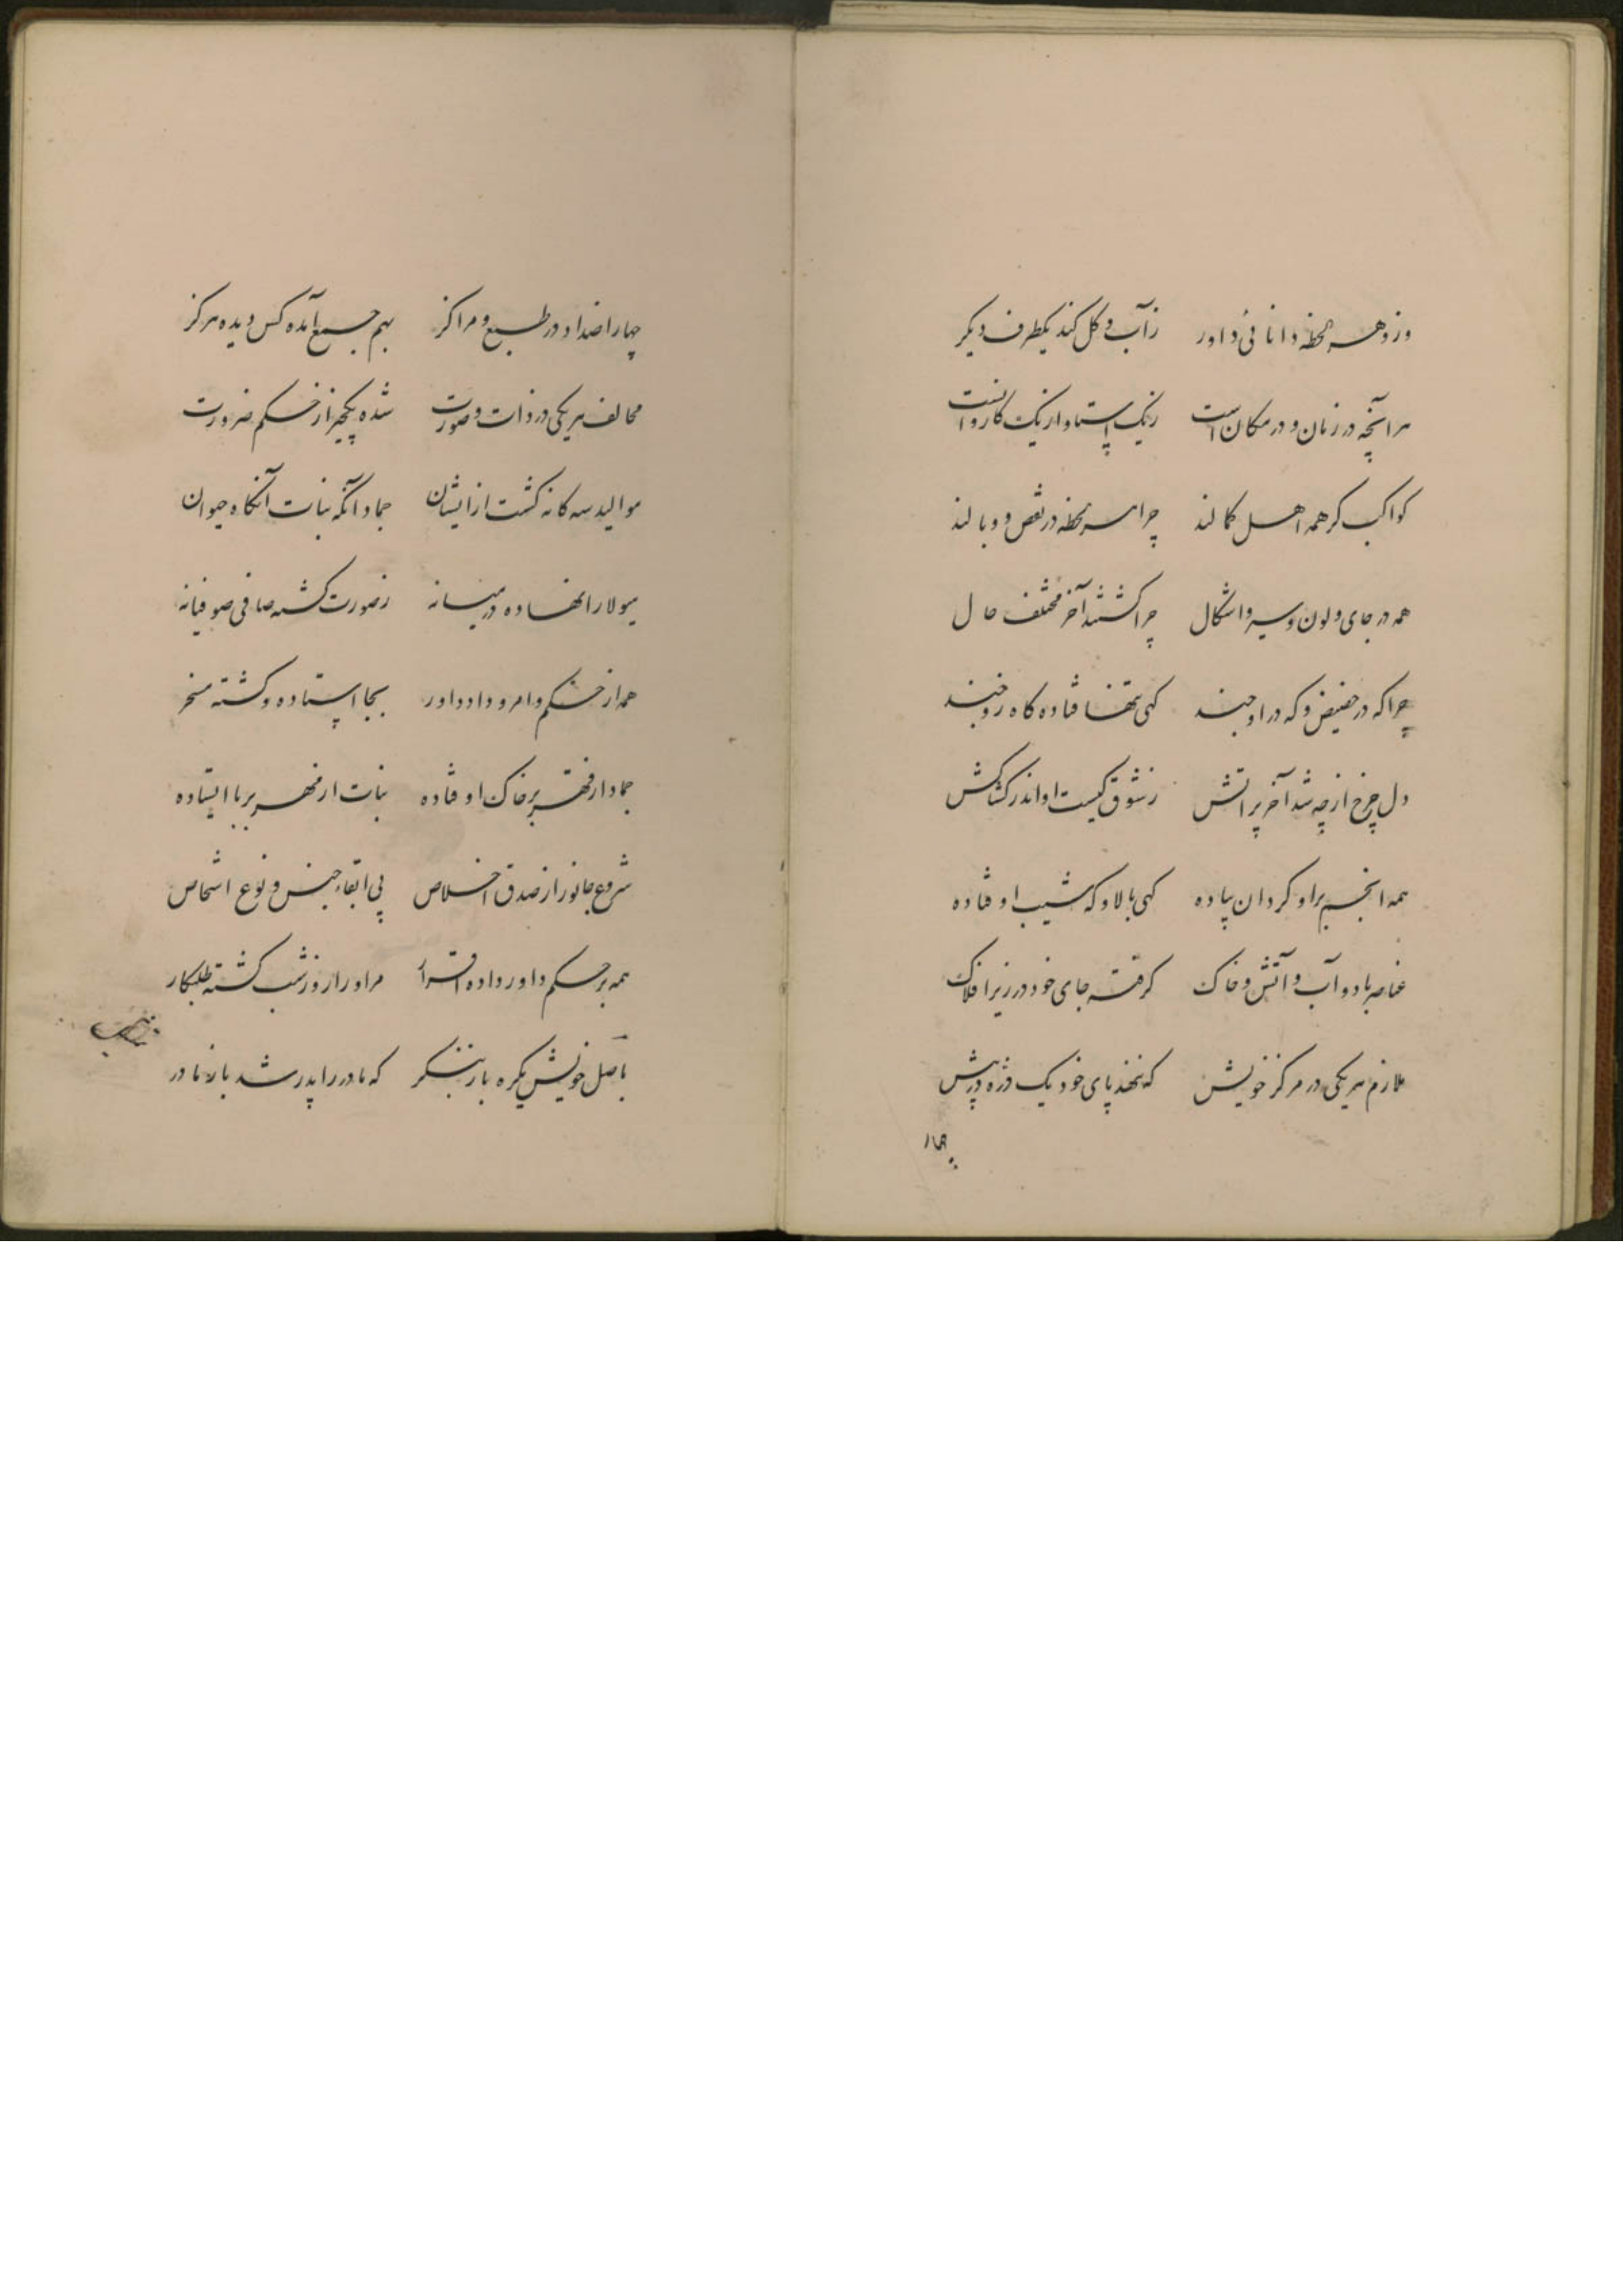 وز و هر لحظه دانائی داور ز آب و کل کند یکظرف دیکر
هر آنچه در زمان و در مکان است ز یک استاد و از یک کارخانست
کواکب کر همه اهل کمالند چرا هر لحظه در نقص و وبالند
همه در جای و لون و سیر و اشکال چرا کشتند آخر مختلف حال
چرا که در حضیض و که در اوجند کهی تنها فتاده کاه زوجند
دل چرخ از چه شد آخر پر آتش ز شوق کیست او اندر کشاکش
همه انجم بر او کردان پیاده کهی بالا و که شیب اوفتاده
عناصر باد و آب و آتش و خاک کرفته جای خود در زیر افلاک
ملازم هر یکی در مرکز خویش که ننهد پای خود یک ذره در پیش
چهار
چهار اضداد در طبع و مراکز بهم جمع آمده کس دیده هرکز
مخالف هر یکی در ذات و صورت شده یکچیز از حکم ضرورت
موالید سه کانه کشت از ایشان جماد آنکه نبات آنکاه حیوان
هیولا را نهاده در میانه ز صورت کشته صافی صوفیانه
همه از حکم و امر و داد داور بجا استاده و کشته مسخر
جماد از قهر بر خاک اوفتاده نبات از مهر بر پا ایستاده
شروع جانور از صدق و اخلاص پی ابقاء جنس و نوع اشخاص
همه بر حکم داور داده اقرار مر او را روز و شب کشته طلبکار
باصل خویش یکره باز بنکر که مادر را پدر شد باز مادر